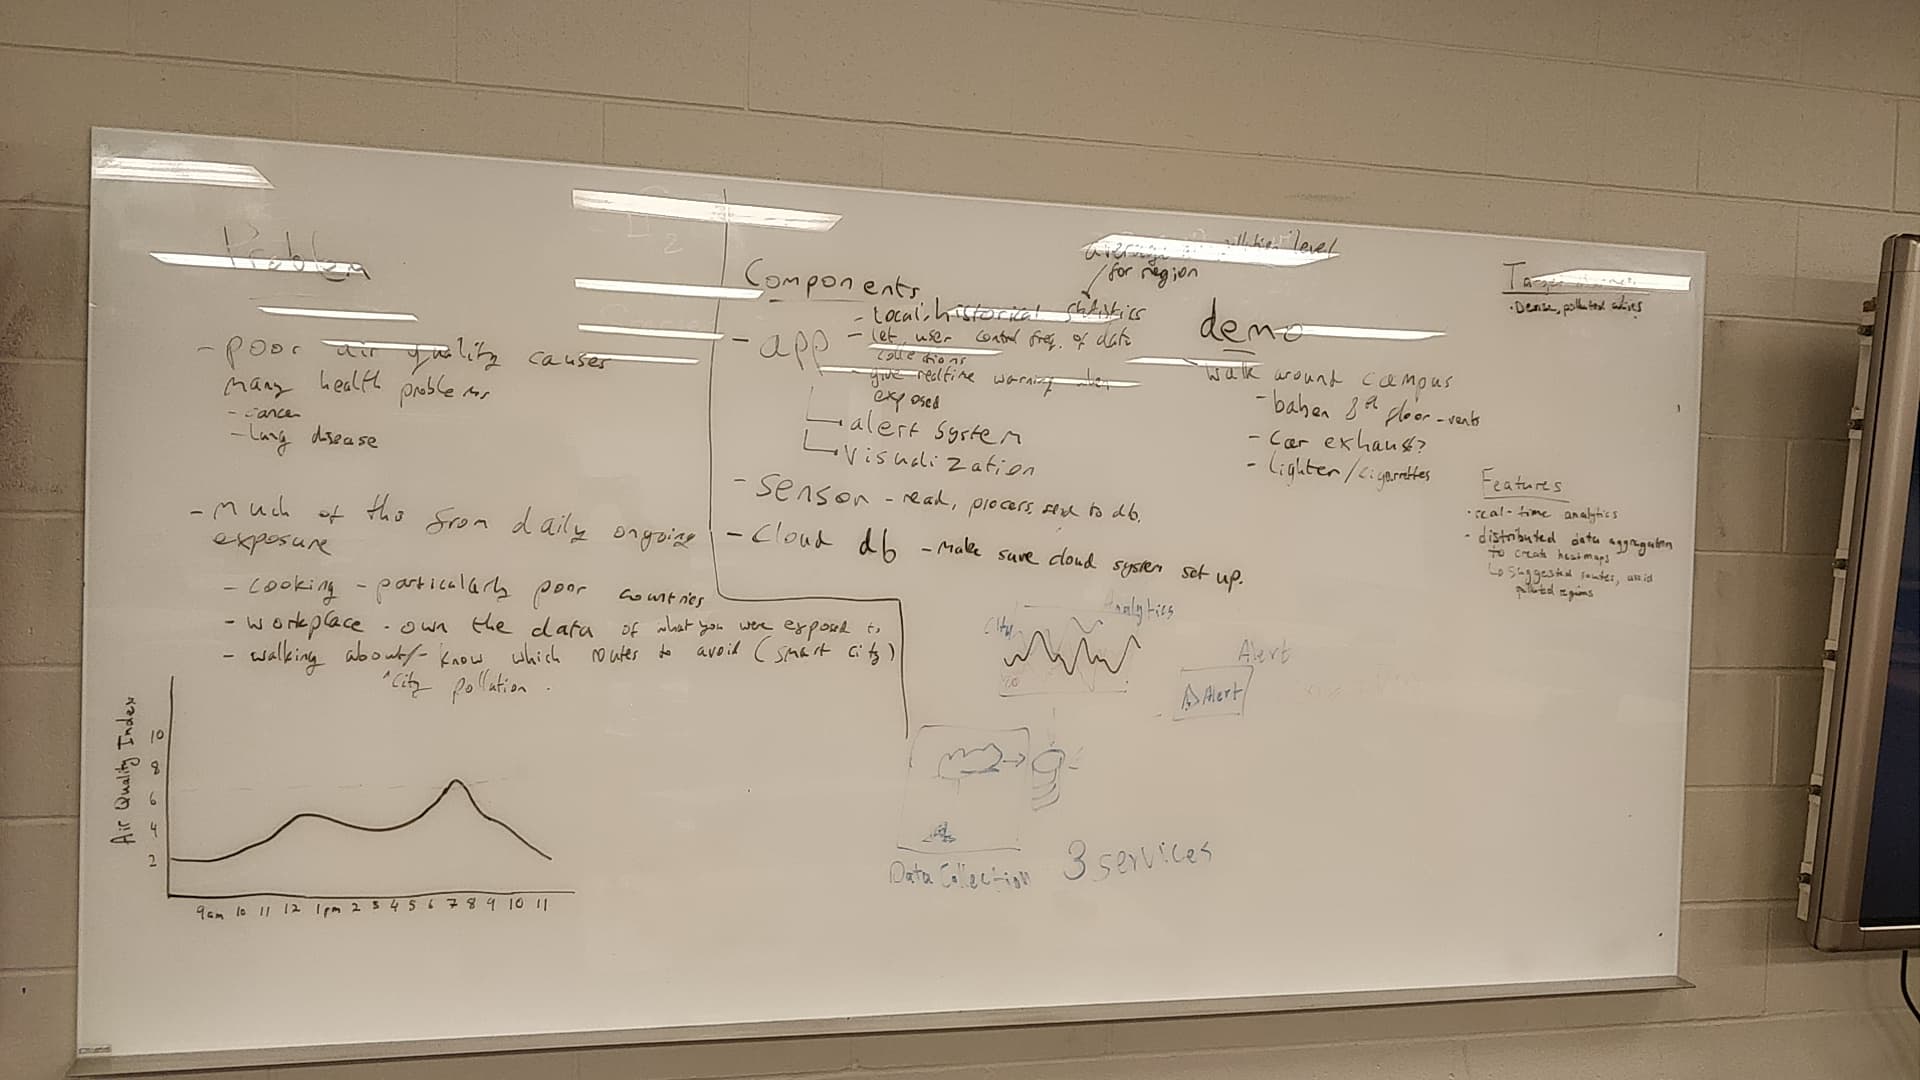 Problem
- poor air quality causes
many health problems
- cancer
- lung disease
- much of this from daily ongoing
exposure
- cooking - particularly poor countries
- workplace - own the data of what you were exposed to
- walking about/- know which routes to avoid (smart city)
^city pollution.
Air Quality Index
10
8
6
4
2
9am 10 11 12 1pm 2 3 4 5 6 7 8 9 10 11
Components
average pollution level
for region
- app
- local, historical statistics
- let user control freq. of data
collections
- give realtime warning when
exposed
alert system
visualization
- sensor - read, process, send to db.
- Cloud db - Make sure cloud system set up.
demo
walk around campus
- bahen 8th floor - vents
- car exhaust?
- lighter/cigarettes
Target
· Dense, polluted cities
Features
· real-time analytics
- distributed data aggregation
to create heatmaps
↳ suggested routes, avoid
polluted regions
Analytics
City
Alert
Alert
Data Collection
3 services